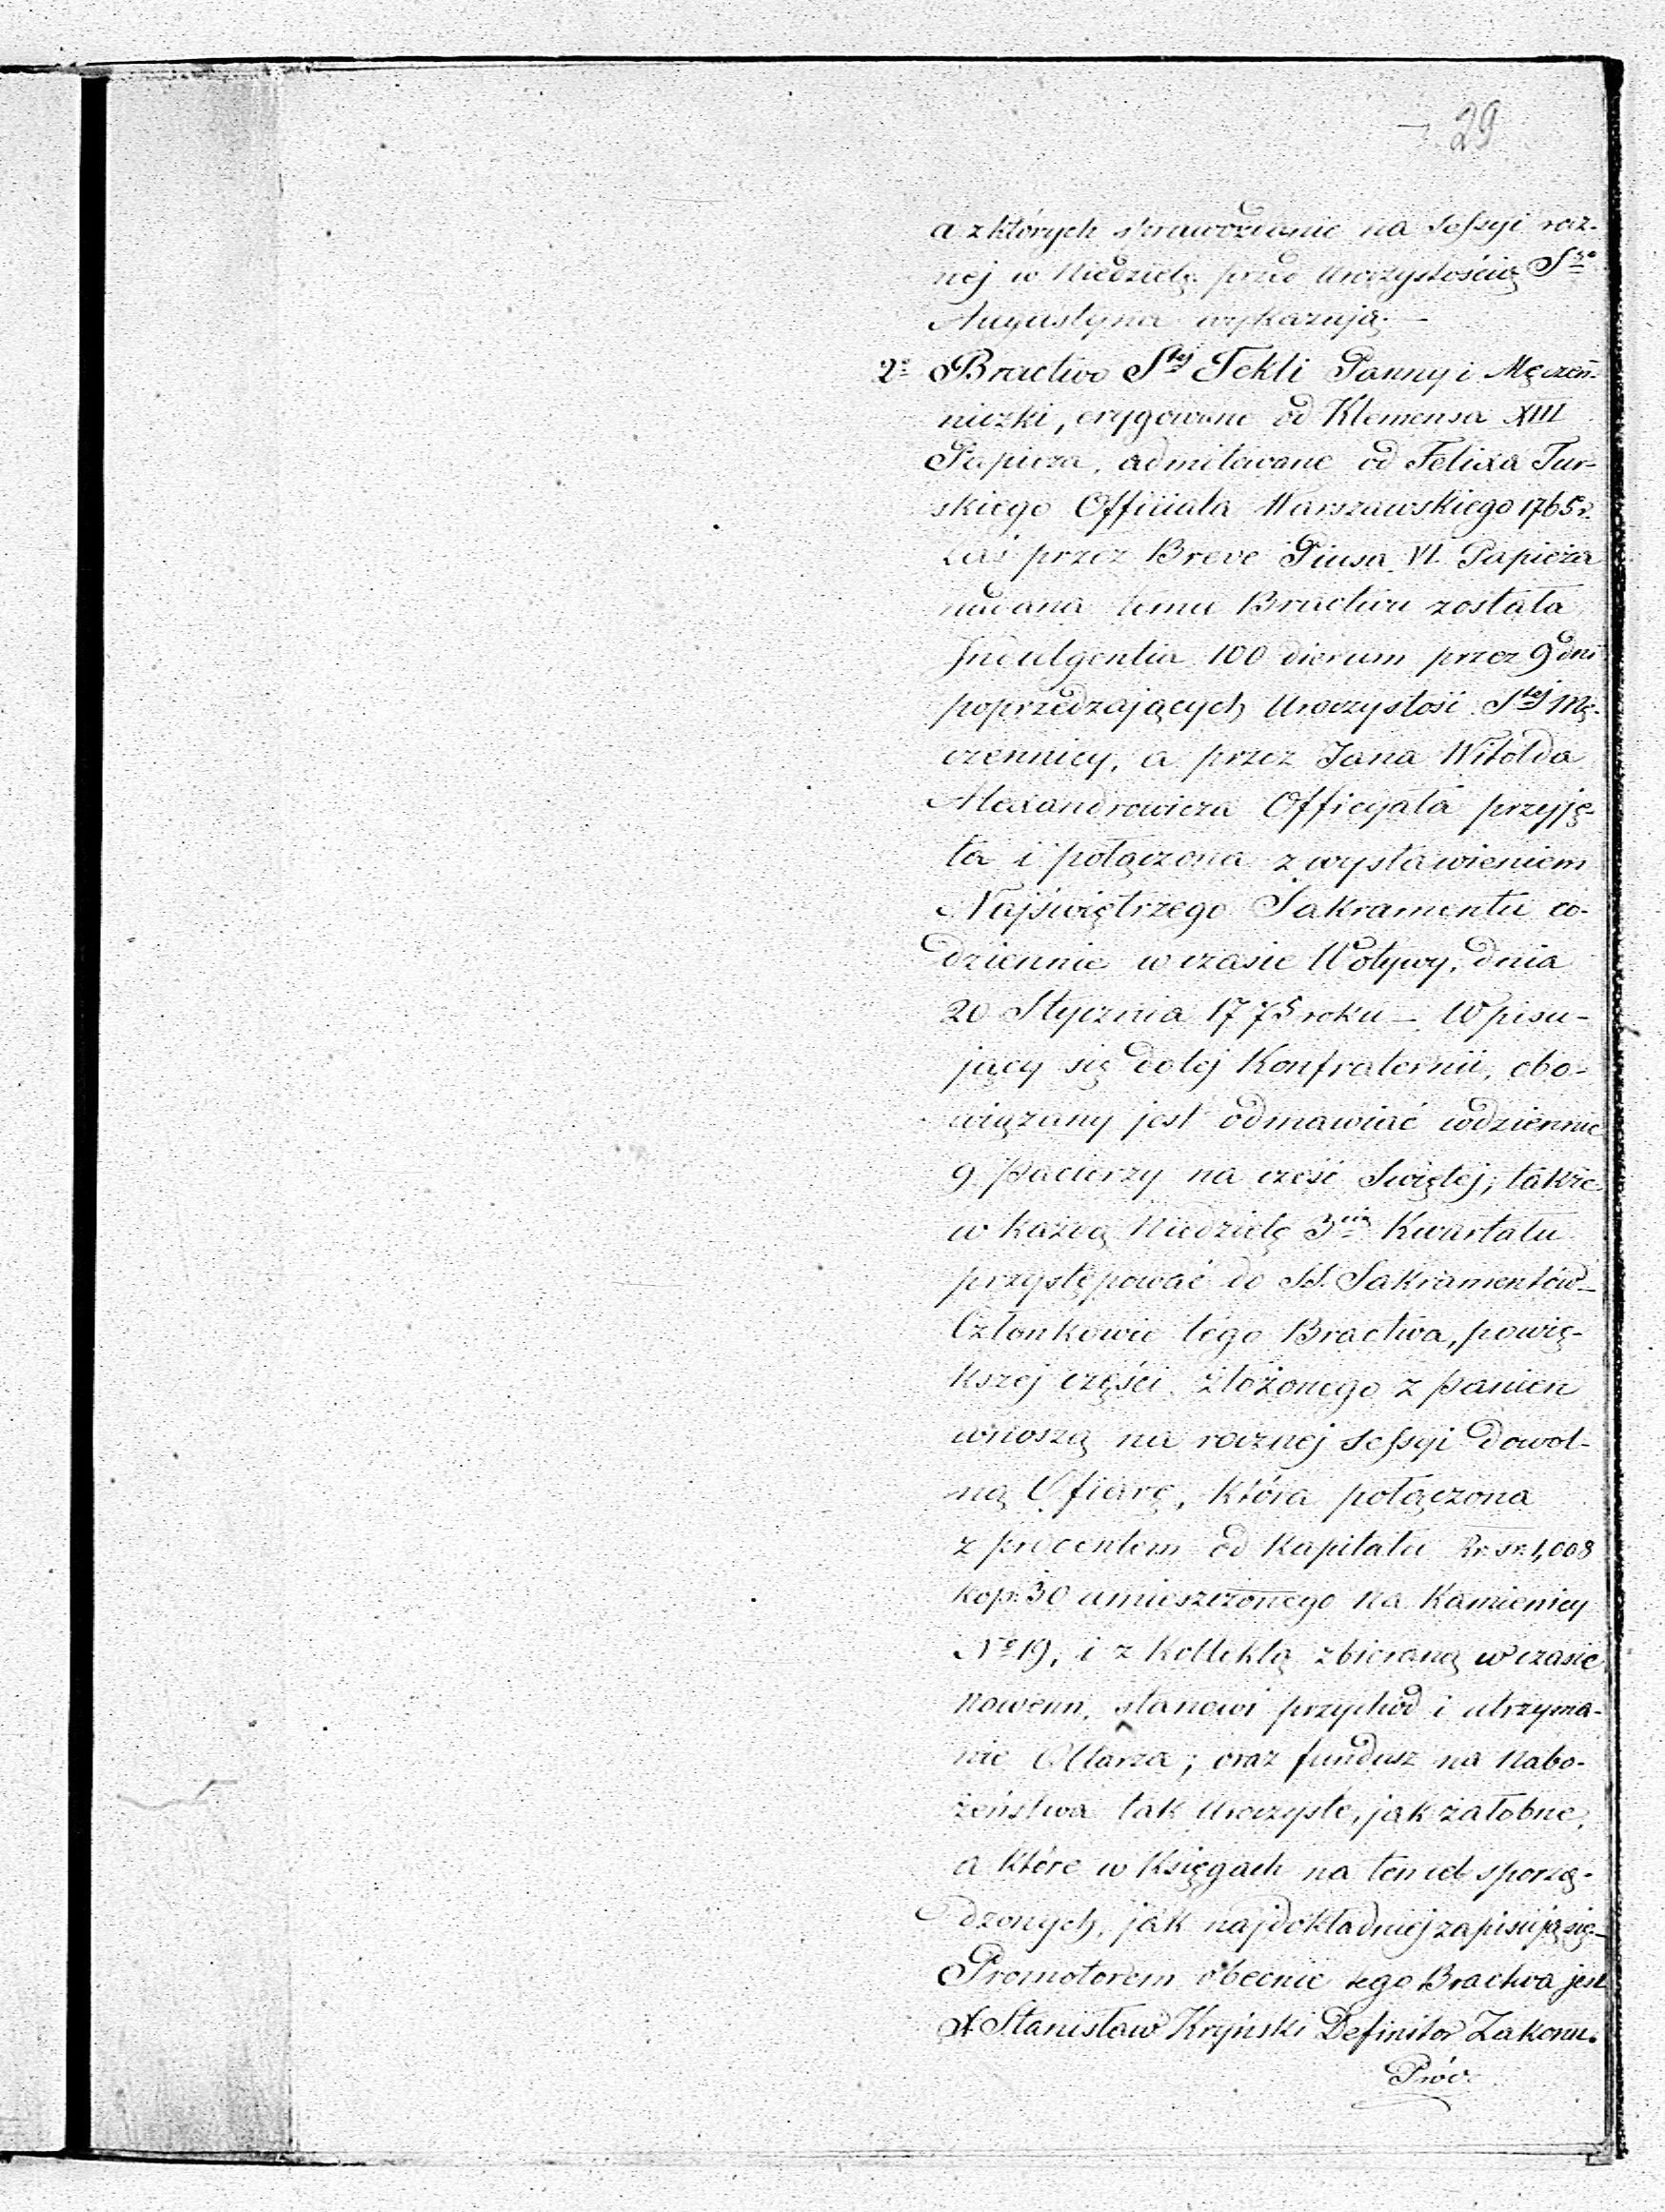 29
a z których sprawozdanie na Sessyi rocz-
nej w Niedzielę przed Uroczystością Sgo
Augustyna wykazują.—
2o Bractwo Stej Tekli Panny i Męczen-
niczki, erygowane od Klemensa XIII
Papieża, admitowane od Felixa Tur-
skiego Officiała Warszawskiego 1765 r.
Zaś przez Breve Piusa VI. Papieża
nadana temu Bractwu została
Indulgentia 100 dierum przez 9 dni
poprzedzających Uroczystość Stej Mę-
czennicy, a przez Jana Witolda
Alexandrowicza Officyała przyję-
ta i połączona z wystawieniem
Najświętrzego Sakramentu co-
dziennie w czasie Wotywy, dnia
20 Stycznia 1775 roku — Wpisu-
jący się do tej Konfraternii, obo-
wiązany jest odmawiać codziennie
9 Pacierzy na cześć Świętej; także
w każdą Niedzielę 3cią Kwartału
przystępować do SS. Sakramentów—
Członkowie tego Bractwa, powię-
kszej części złożonego z Panien
wnoszą na rocznej Sessyi dowol-
ną Ofiarę, która połączona
z procentem od Kapitału Rr. sr. 1,008
kop. 30 umieszczonego na Kamienicy
No 19, i z Kollektą zbieraną w czasie
Nowenn, stanowi przychód i utrzyma-
nie Ołtarza; oraz fundusz na Nabo-
żeństwa tak Uroczyste, jak żałobne,
a które w Księgach na ten cel sporzą-
dzonych, jak najdokładniej zapisują się—
Promotorem obecnie tego Bractwa jest
X Stanisław Kryński Definitor Zakonu.